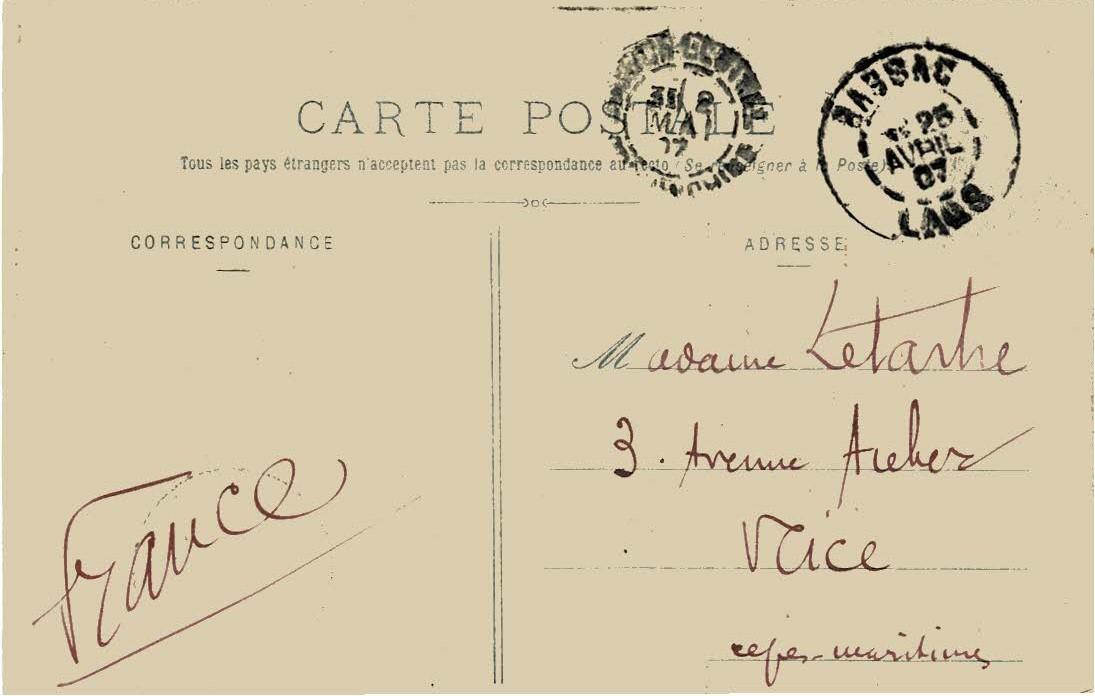 CARTE POSTALE
Tous les pays étrangers n'acceptent pas la correspondance au recto (Se renseigner à la Poste)
BASSAC
25
AVRIL
07
LAOS
MAI
CORRESPONDANCE
ADRESSE
Madame Letartre
3. Avenue Auber
Nice
France
maritimes